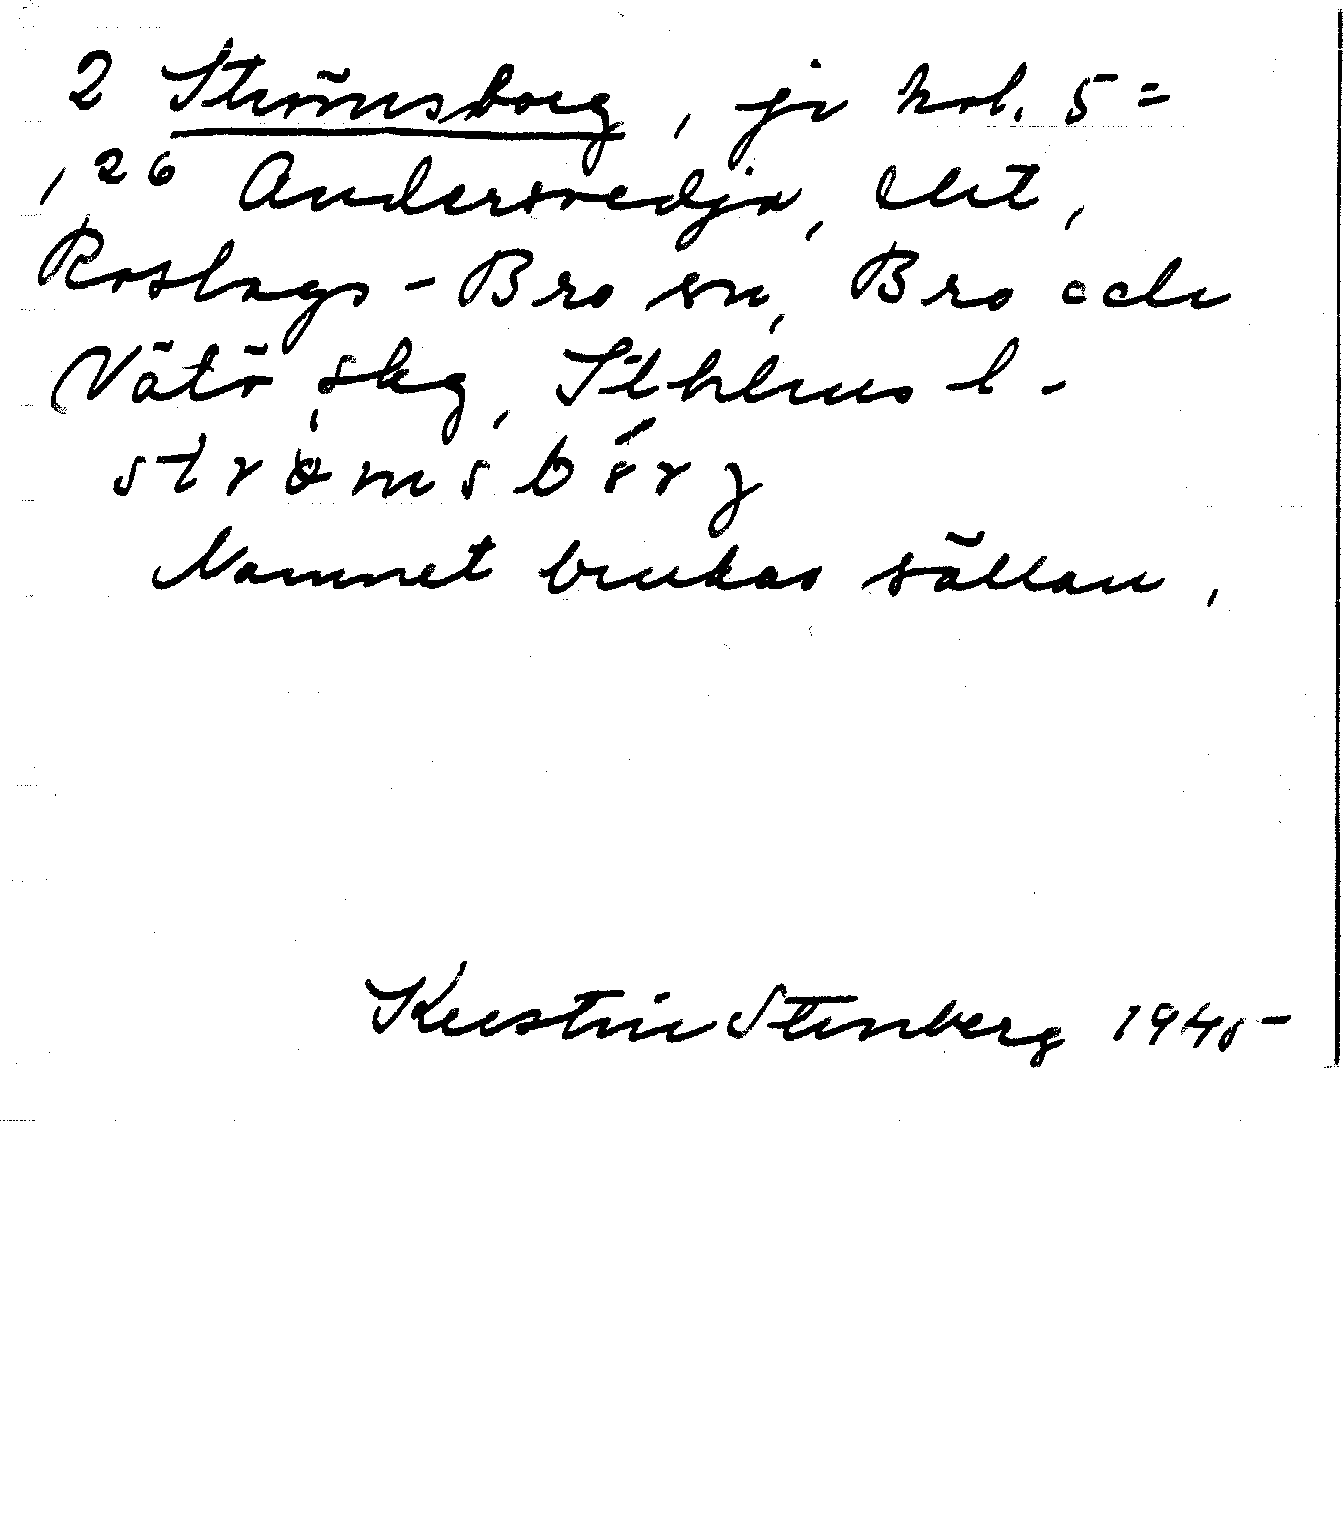 2 Strömsborg, ji hol. 5 =
,26 Andersvedja, Mt,
Roslags-Bro sn, Bro och
Vätö skg, Sthlms l.
strömsbórg
Namnet brukas sällan.
Kerstin Stenberg 1945-